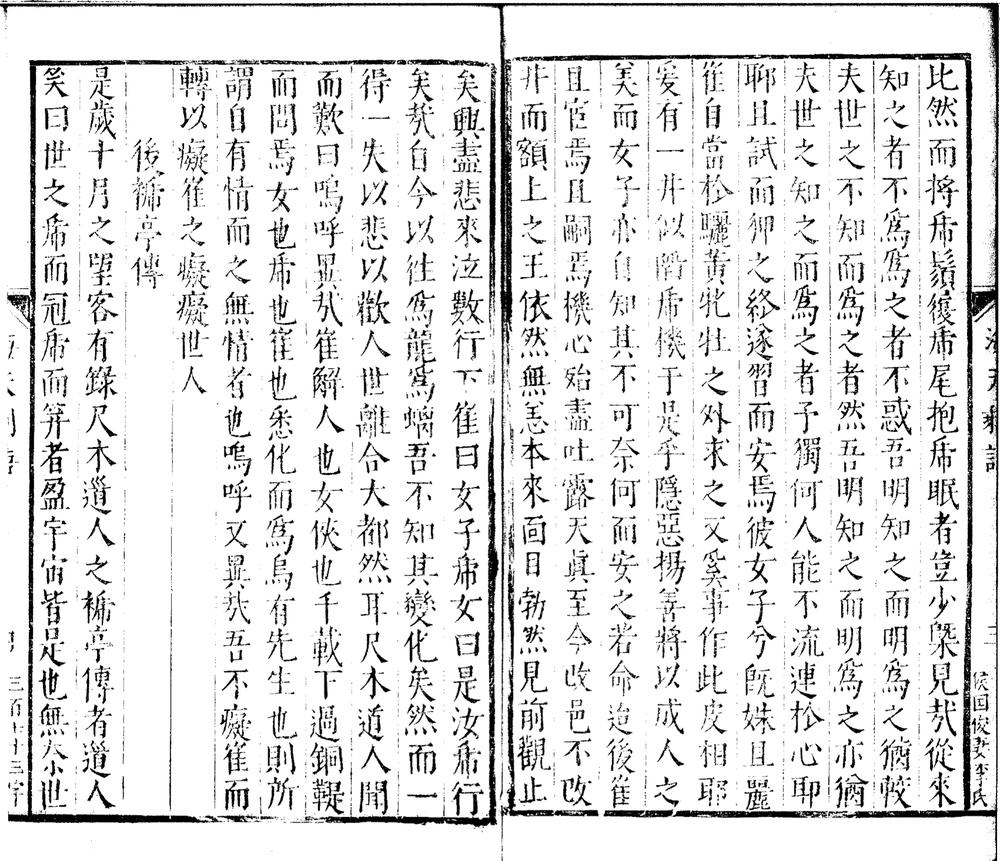 比然而捋虎鬚履虎尾抱虎眠者豈少槩見㢤從來
知之者不爲爲之者不惑吾明知之而明爲之猶較
夫世之不知而爲之者然吾明知之而明爲之亦猶
夫世之知之而爲之者子獨何人能不流連扵心耶
耶且試而狎之終遂習而安焉彼女子兮旣姝且麗
崔自當扵驪黃牝牡之外求之又奚事作此皮相耶
爰有一井似階虎機于是乎隱惡揚善將以成人之
美而女子亦自知其不可奈何而安之若命迨後崔
且宦焉且嗣焉機心殆盡吐露天眞至今改邑不改
井而額上之王依然無恙本來面目勃然見前觀止
矣興盡悲來泣數行下崔曰女子虎女曰是汝虎行
矣㢤自今以徃爲龍爲螭吾不知其變化矣然而一
得一失以悲以歡人世離合大都然耳尺木道人聞
而歎曰嗚呼異㢤崔解人也女俠也千載下過銅鞮
而問焉女也虎也崔也悉化而爲烏有先生也則所
謂自有情而之無情者也嗚呼又異㢤吾不癡崔而
轉以癡崔之癡癡世人
後褅亭傳
是歲十月之望客有錄尺木道人之褅亭傳者道人
矣曰世之虎而冠虎而笄者盈宇宙皆是也無柰世
三百七十三字